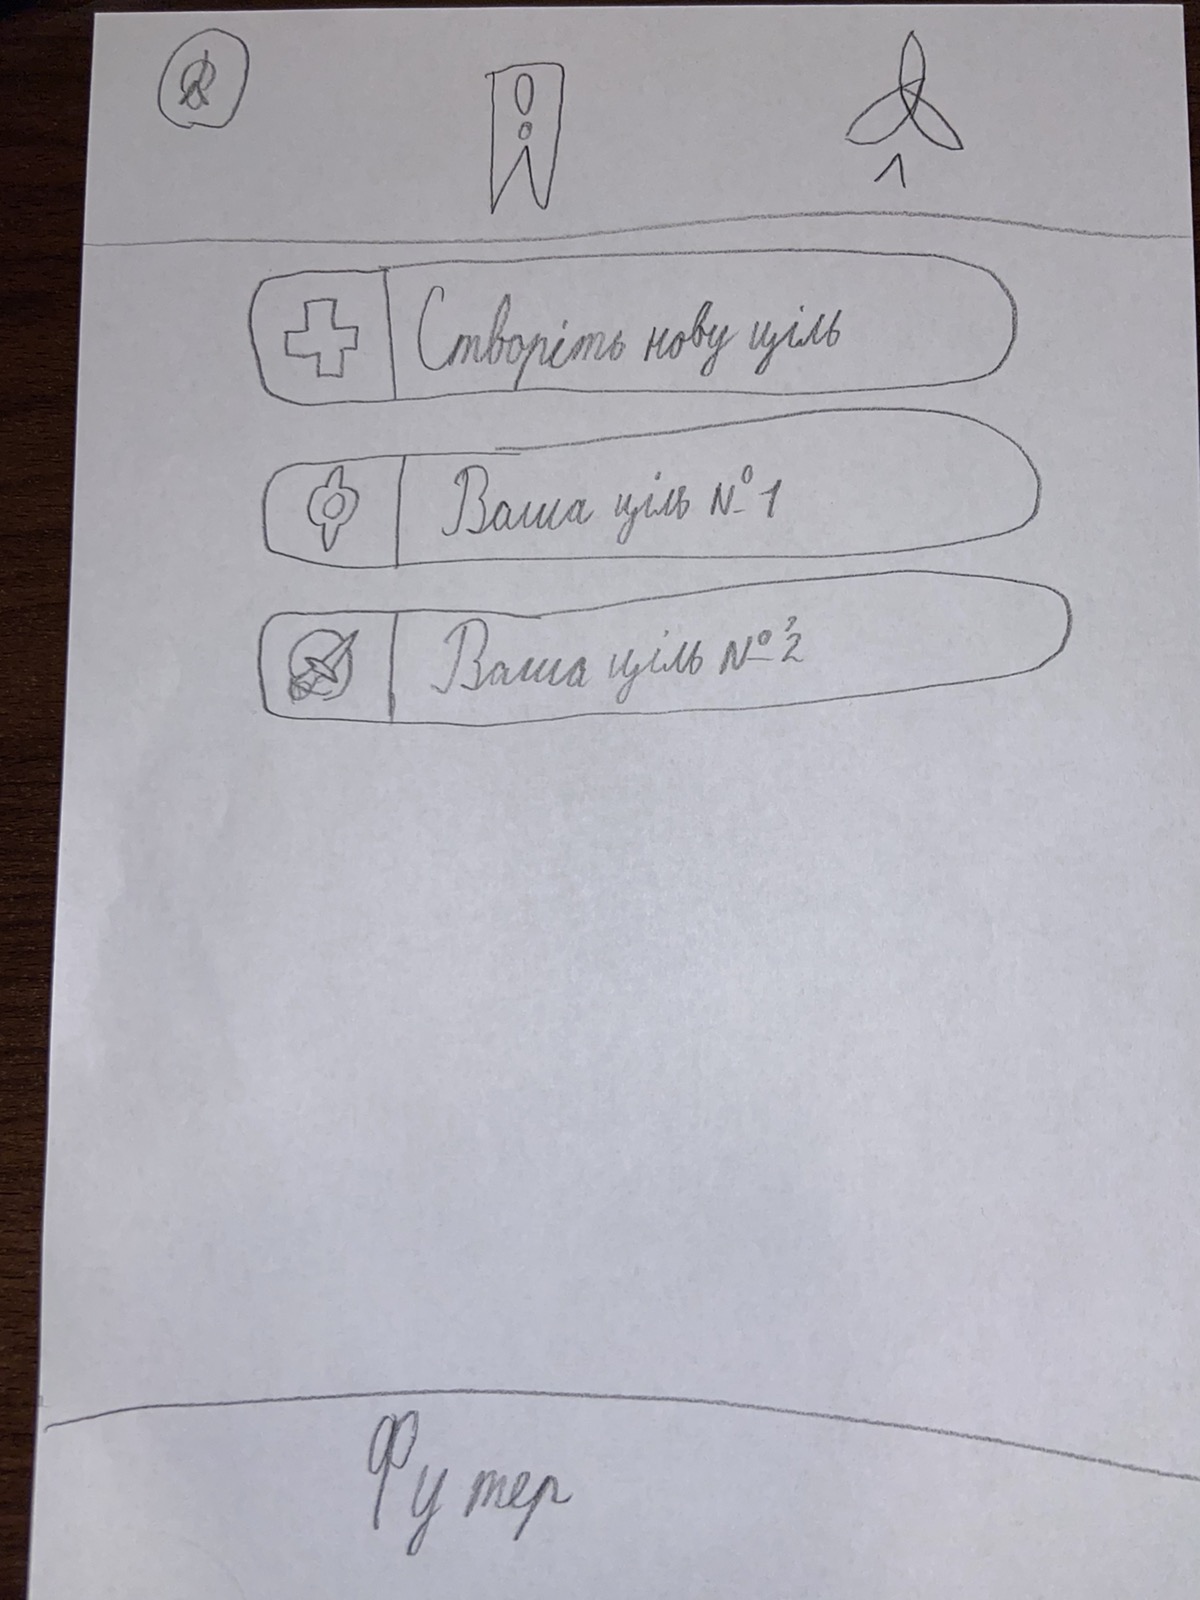 1
Створіть нову ціль
Ваша ціль № 1
Ваша ціль № 2
Футер